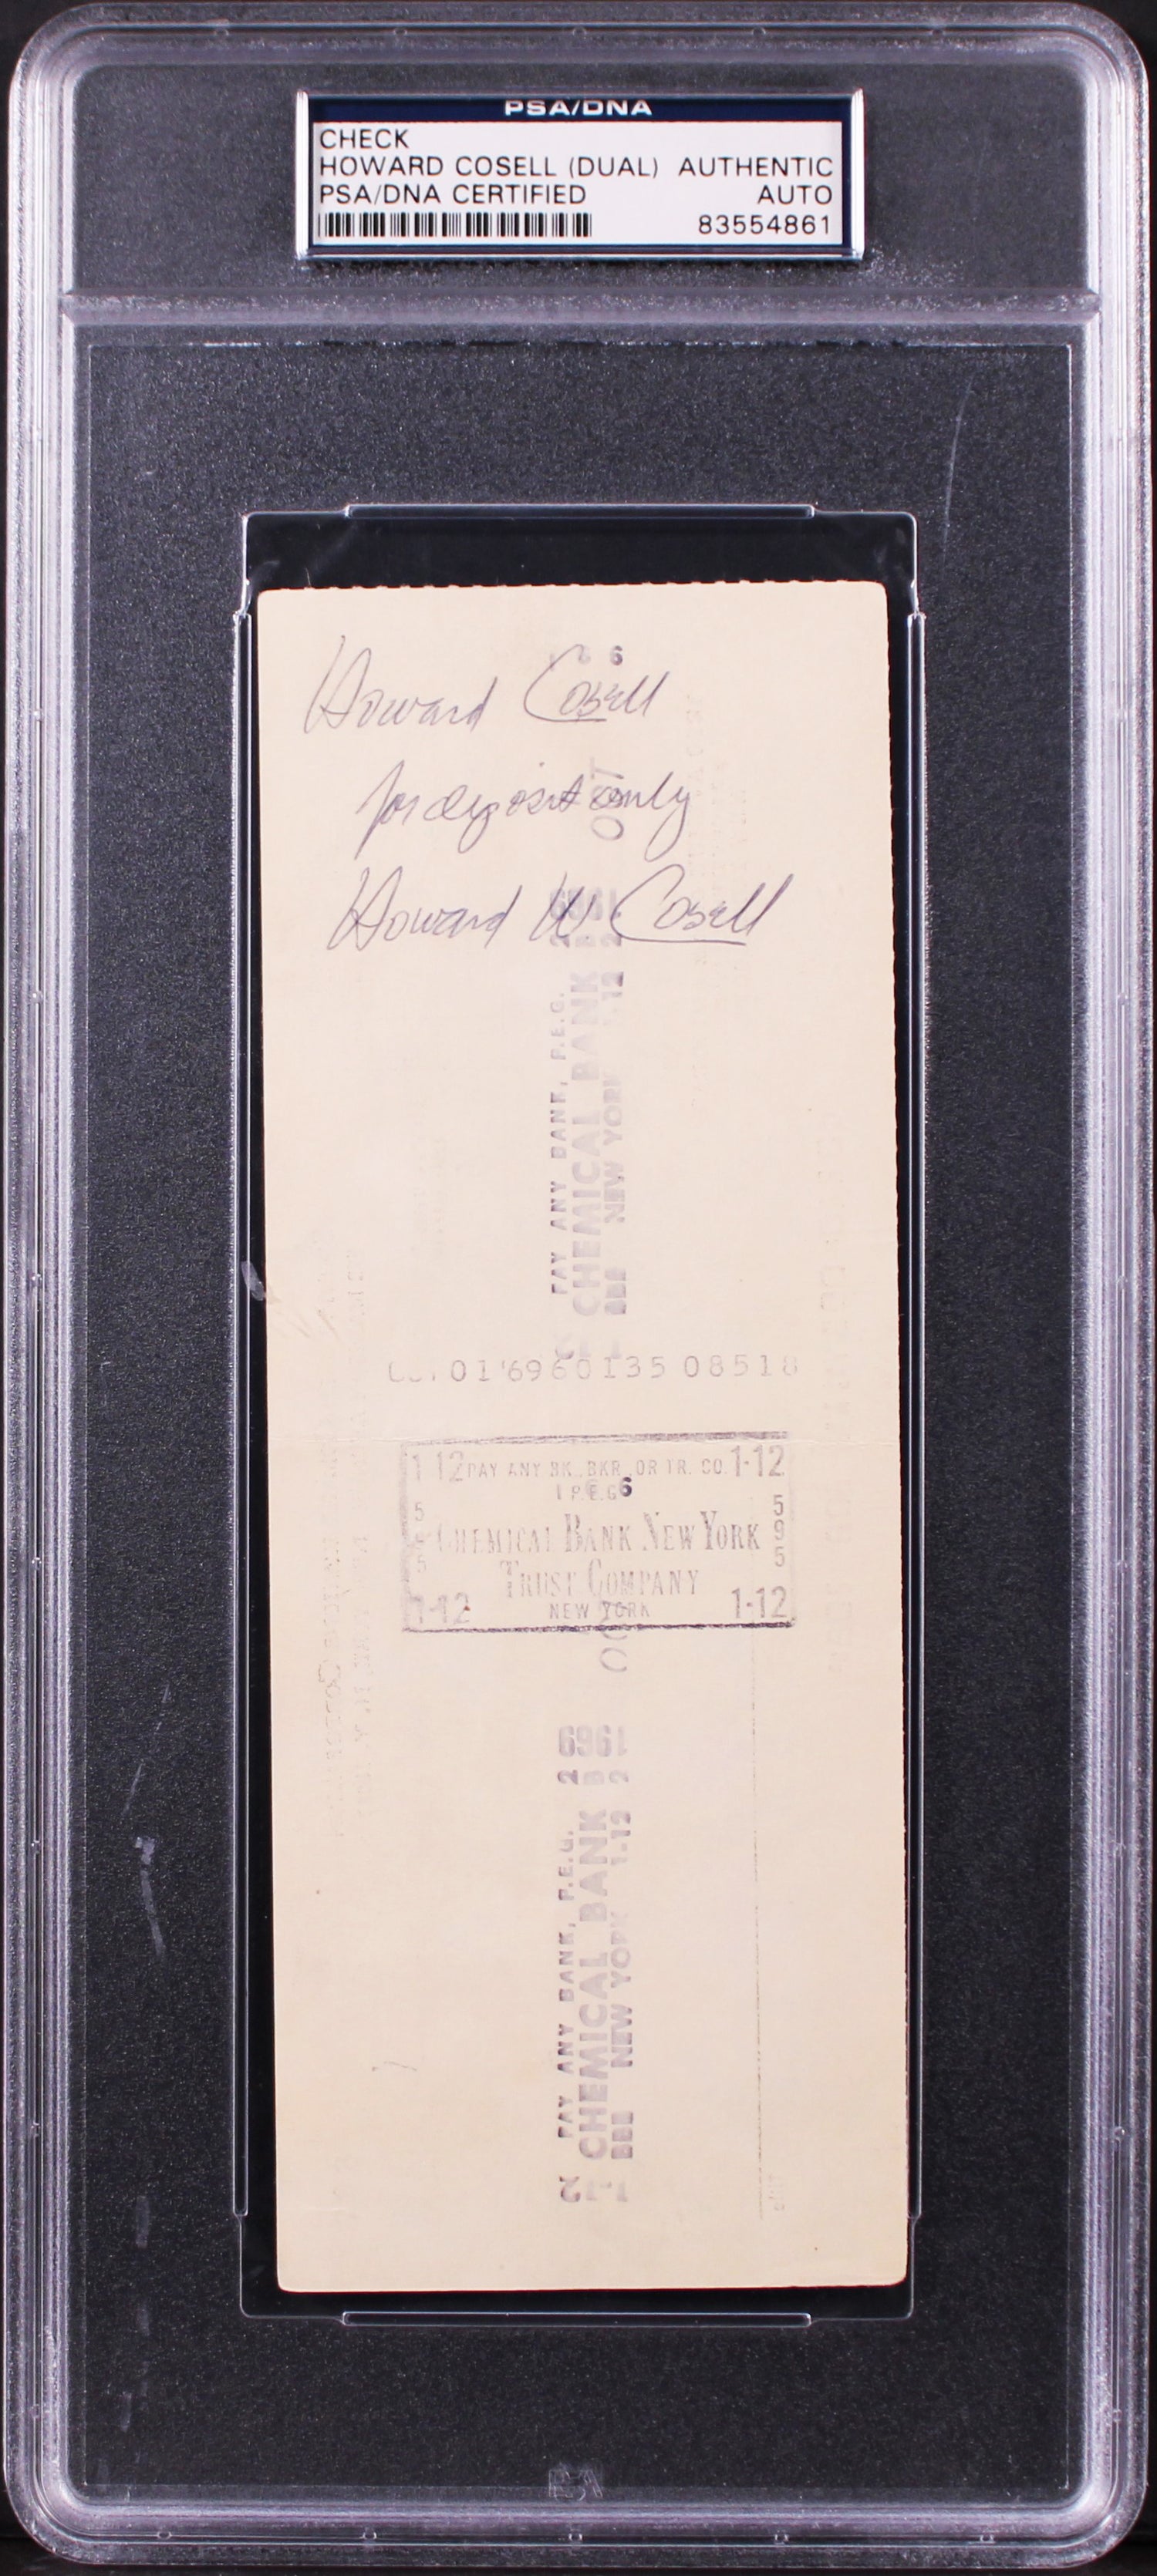 PSA/DNA
CHECK
HOWARD COSELL (DUAL) AUTHENTIC
PSA/DNA CERTIFIED AUTO
83554861
Howard Cosell
for deposit only
Howard W Cosell
PAY ANY BANK, P.E.G.
CHEMICAL BANK
NEW YORK 1-12
01 '69 60135 08518
1-12 PAY ANY BK., BKR., OR TR. CO. 1-12
P.E.G.
CHEMICAL BANK NEW YORK
TRUST COMPANY
1-12 NEW YORK 1-12
595
1969
PAY ANY BANK, P.E.G.
CHEMICAL BANK
NEW YORK 1-12